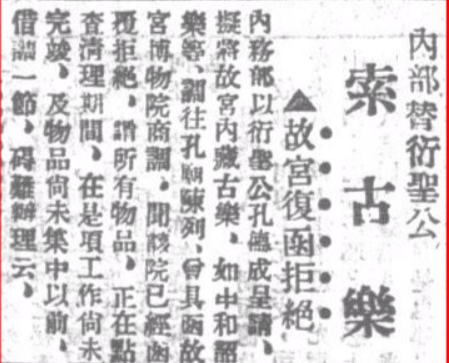 內部替衍聖公
索古樂
▲故宮復函拒絕
內務部以衍聖公孔德成呈請、
擬將故宮內藏古樂、如中和韶
樂等、調往孔廟陳列、曾具函故
宮博物院商調、聞該院已經函
覆拒絕、謂所有物品、正在點
查清理期間、在是項工作尚未
完竣、及物品尚未集中以前、
借調一節、碍難辦理云、